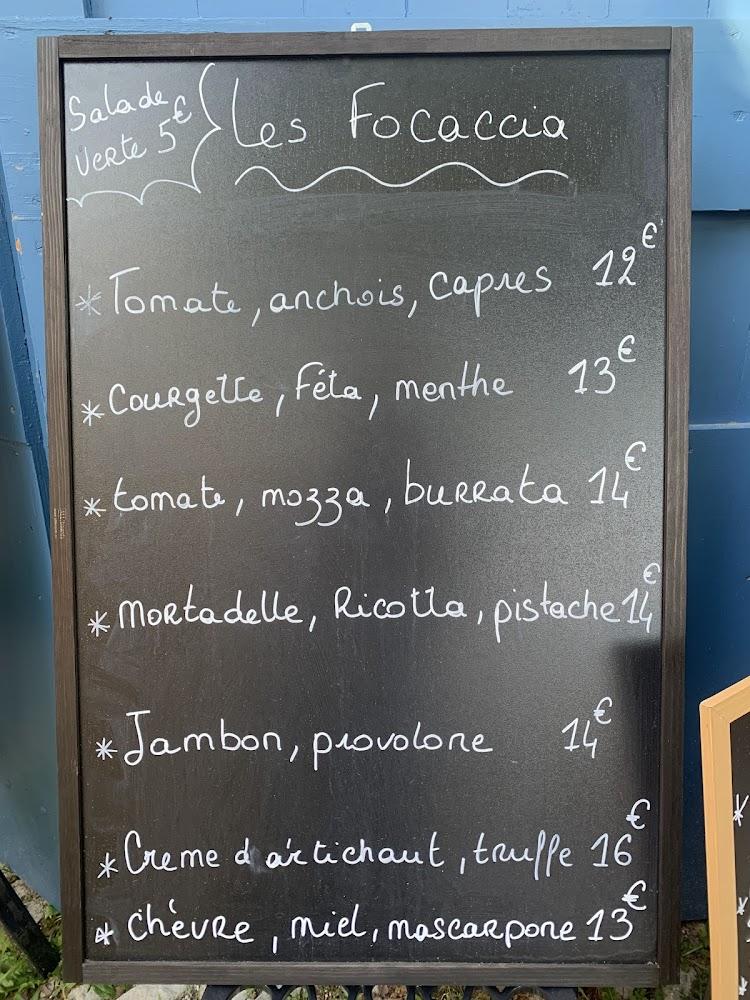 Salade
verte 5€
Les Focaccia
* Tomate, anchois, capres 12€
* Courgette, Féta, menthe 13€
* tomate, mozza, burrata 14€
* Mortadelle, Ricotta, pistache 14€
* Jambon, provolone 14€
* Creme d'artichaut, truffe 16€
* Chèvre, miel, mascarpone 13€